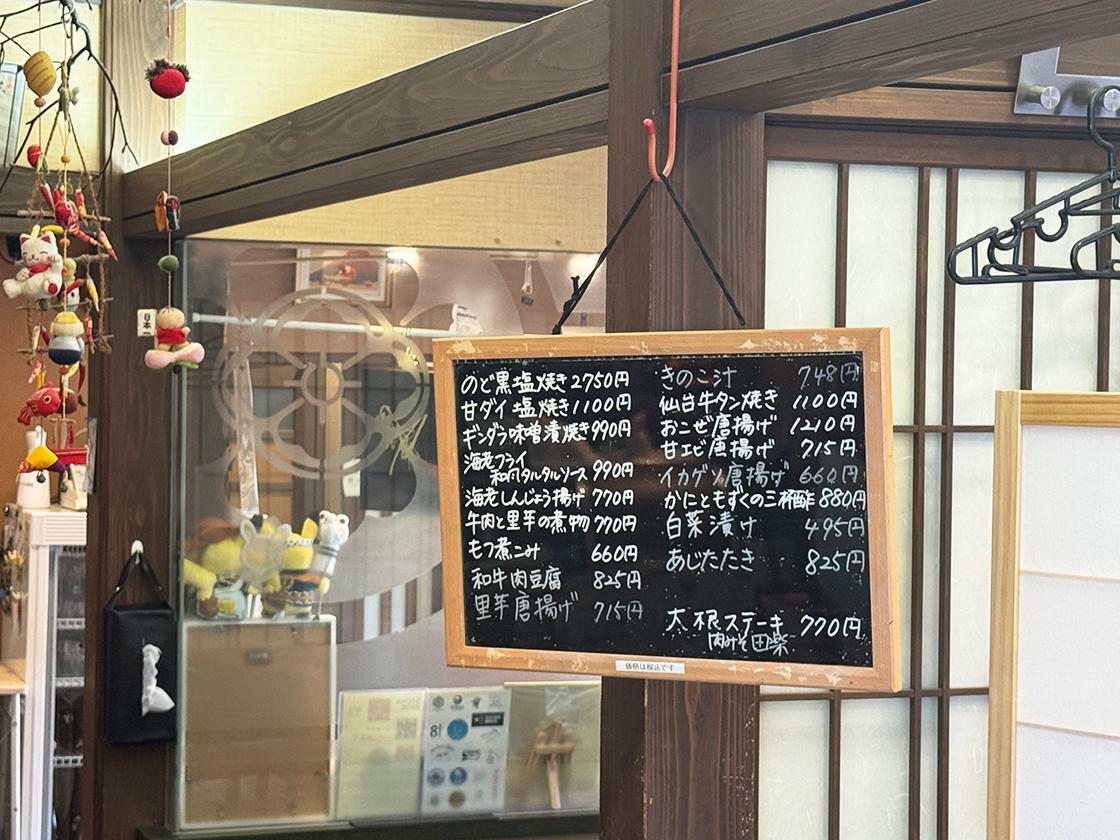 のど黒塩焼き2750円
甘ダイ塩焼き1100円
ギンダラ味噌漬焼き990円
海老フライ
和風タルタルソース 990円
海老しんじょう揚げ 770円
牛肉と里芋の煮物 770円
もつ煮こみ 660円
和牛肉豆腐 825円
里芋唐揚げ 715円
きのこ汁 748円
仙台牛タン焼き 1100円
おこぜ唐揚げ 1210円
甘エビ唐揚げ 715円
イカゲソ唐揚げ 660円
かにともずくの二杯酢 880円
白菜漬け 495円
あじたたき 825円
大根ステーキ 770円
肉みそ田楽
価格は税込です
日本一